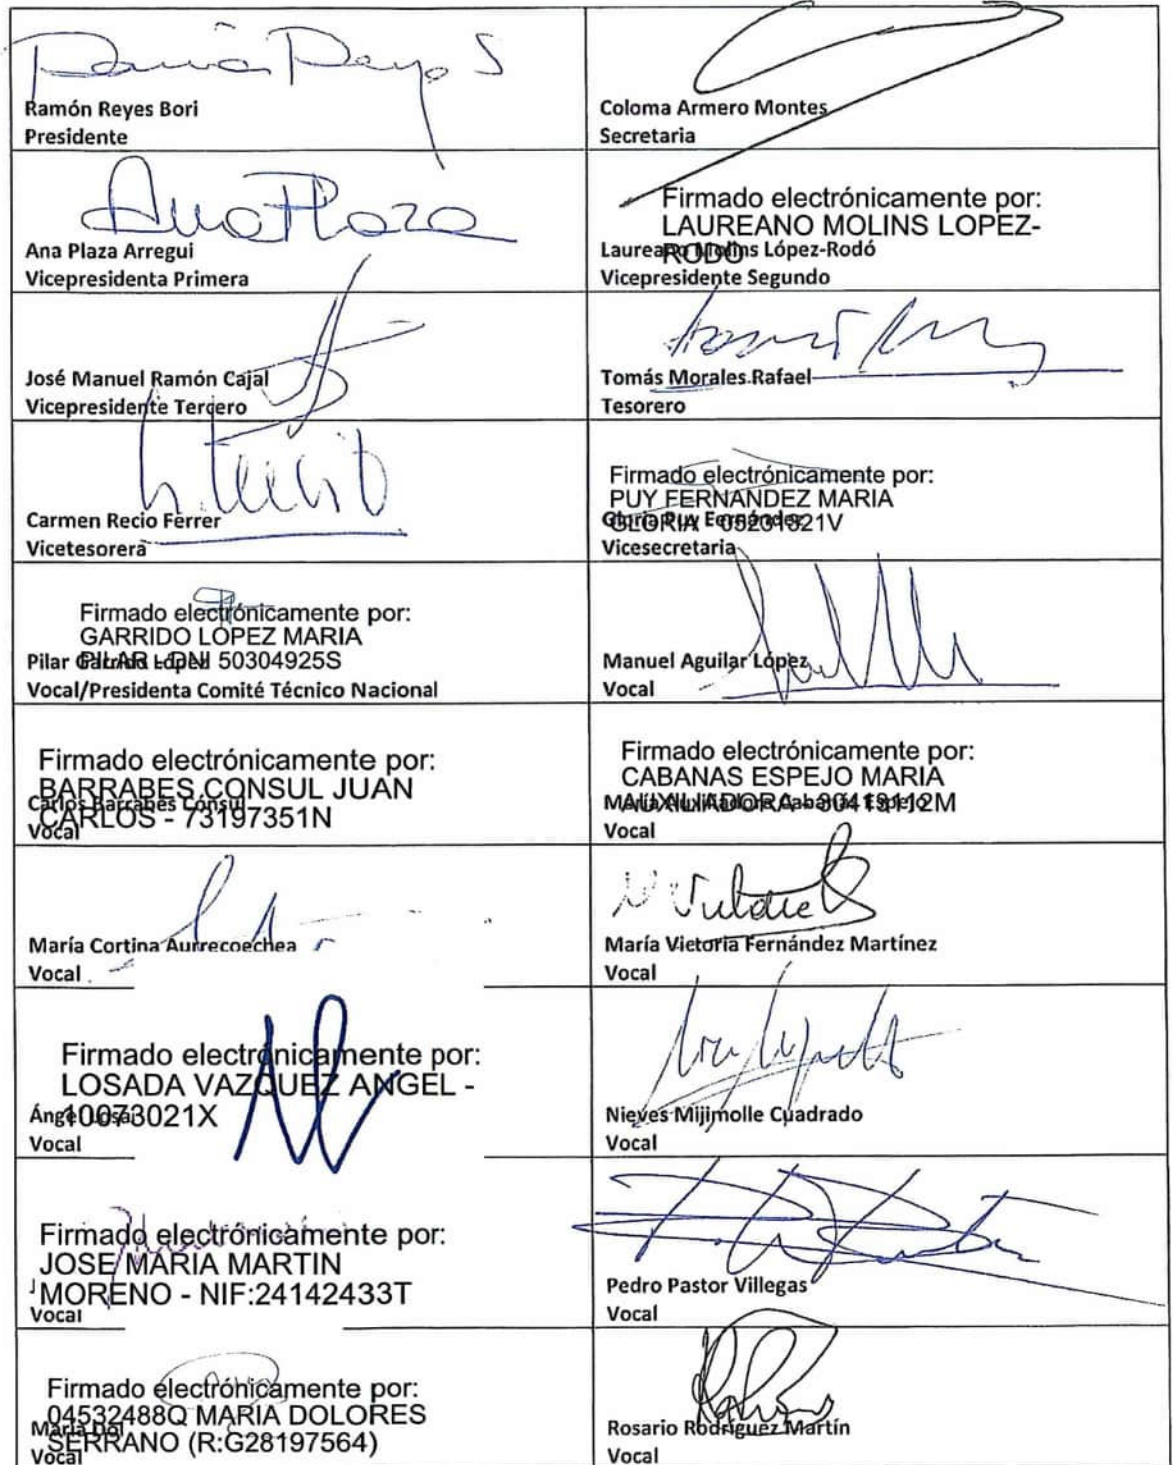 Ramón Reyes S
Ramón Reyes Bori
Presidente
Coloma Armero Montes
Secretaria
Ana Plaza
Ana Plaza Arregui
Vicepresidenta Primera
Firmado electrónicamente por:
LAUREANO MOLINS LOPEZ-
RODO
Laureano Molins López-Rodó
Vicepresidente Segundo
José Manuel Ramón Cajal
Vicepresidente Tercero
Tomás Morales Rafael
Tesorero
Carmen Recio Ferrer
Vicetesorera
Firmado electrónicamente por:
PUY FERNANDEZ MARIA
GLORIA - 05231321V
Gloria Puy Fernández
Vicesecretaria
Firmado electrónicamente por:
GARRIDO LOPEZ MARIA
PILAR - DNI 50304925S
Pilar Garrido López
Vocal/Presidenta Comité Técnico Nacional
Manuel Aguilar López
Vocal
Firmado electrónicamente por:
BARRABES CONSUL JUAN
CARLOS - 73197351N
Carlos Barrabés Cónsul
Vocal
Firmado electrónicamente por:
CABANAS ESPEJO MARIA
AUXILIADORA - 30413112M
María Auxiliadora Cabanás Espejo
Vocal
María Cortina Aurrecoechea
Vocal
María Victoria Fernández Martínez
Vocal
Firmado electrónicamente por:
LOSADA VAZQUEZ ANGEL -
10073021X
Ángel Losa
Vocal
Nieves Mijimolle Cuadrado
Vocal
Firmado electrónicamente por:
JOSE MARIA MARTIN
MORENO - NIF:24142433T
Vocal
Pedro Pastor Villegas
Vocal
Firmado electrónicamente por:
04532488Q MARIA DOLORES
SERRANO (R:G28197564)
María Dol
Vocal
Rosario Rodríguez Martín
Vocal